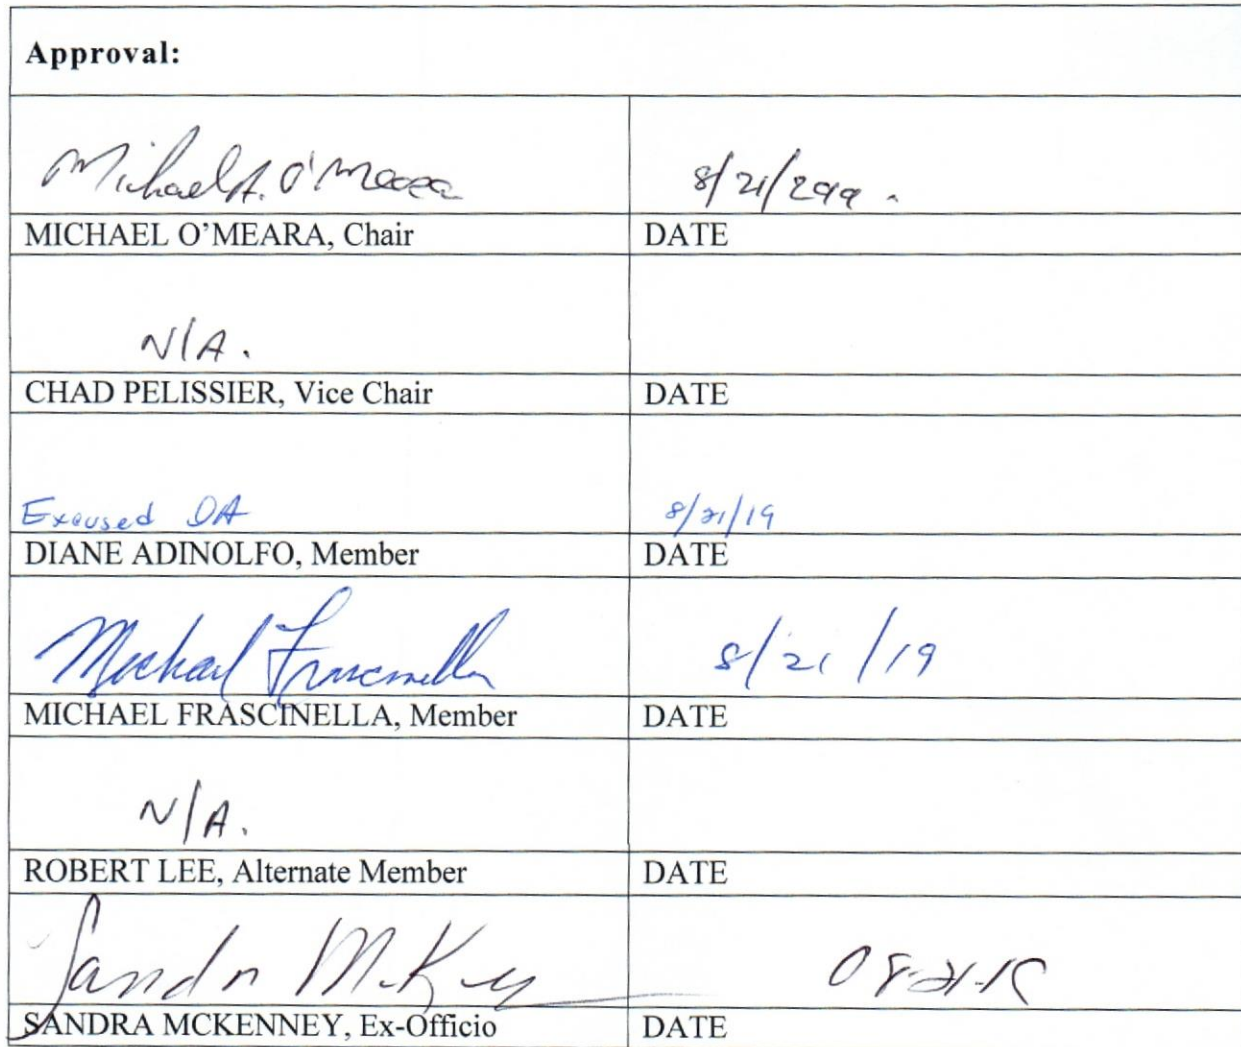 Approval:
Michael A. O'Meara 8/21/299.
MICHAEL O'MEARA, Chair DATE
N/A.
CHAD PELISSIER, Vice Chair DATE
Excused DA 8/21/19
DIANE ADINOLFO, Member DATE
Michael Frascinella 8/21/19
MICHAEL FRASCINELLA, Member DATE
N/A.
ROBERT LEE, Alternate Member DATE
Sandra McKenney 08-21-19
SANDRA MCKENNEY, Ex-Officio DATE